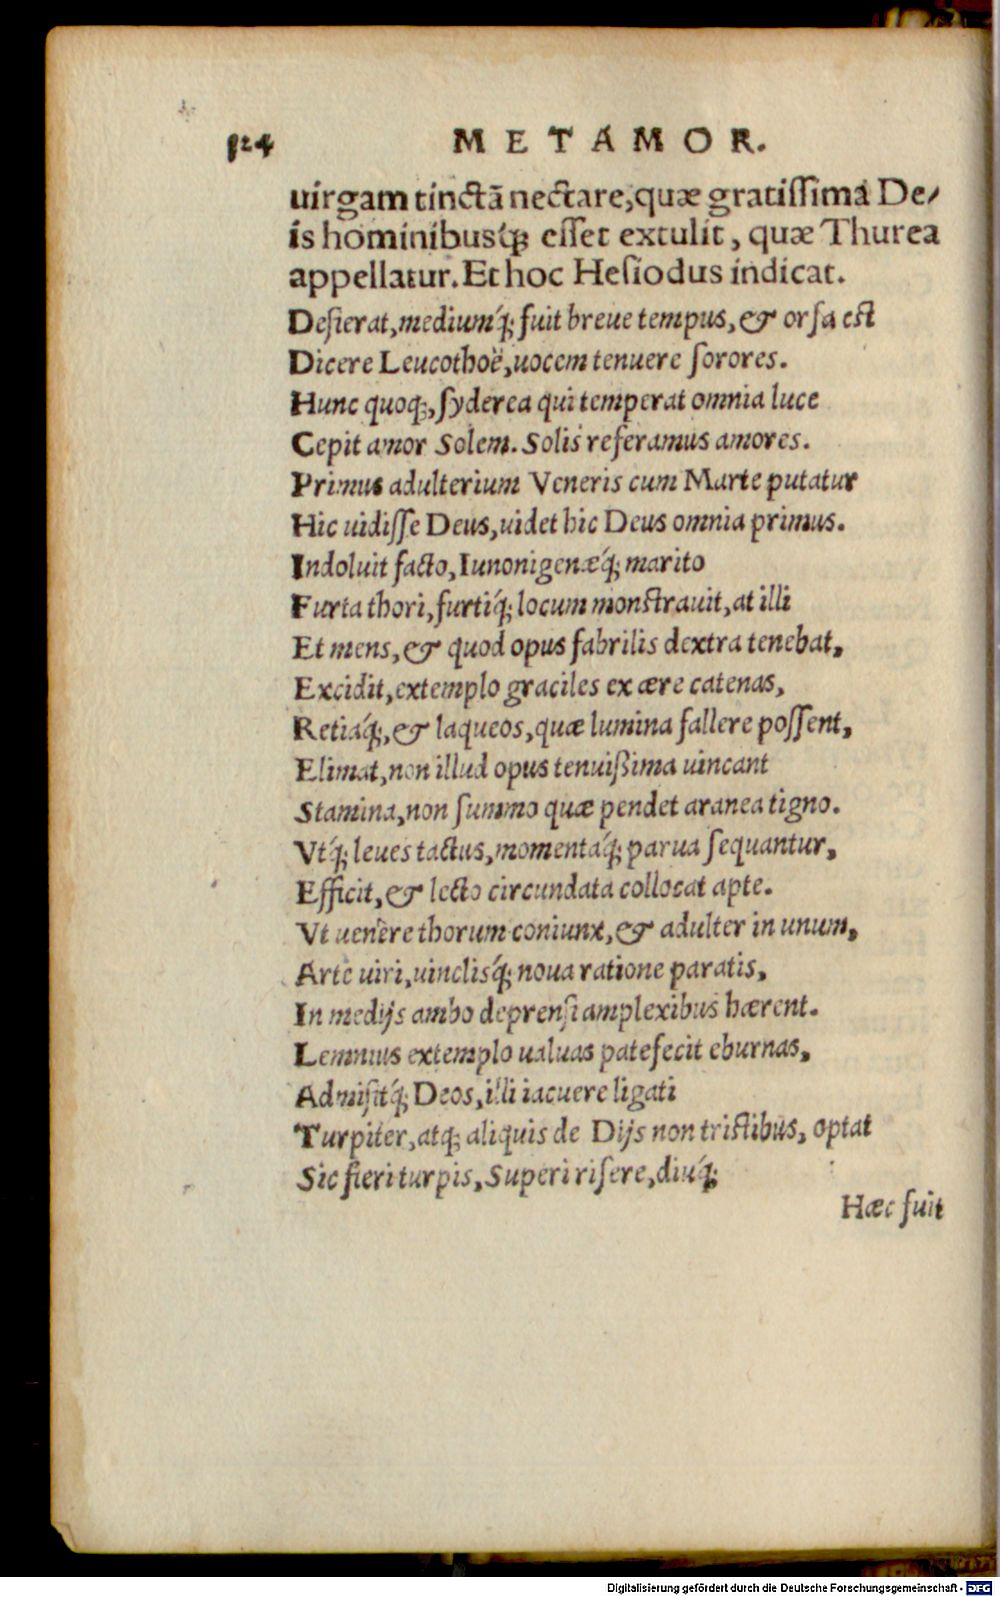 124 METAMOR.
uirgam tinctā nectare, quæ gratiſſima De/
is hominibusq́; eſſet extulit, quæ Thurea
appellatur. Et hoc Heſiodus indicat.
Deſierat, mediumq́; fuit breue tempus, & orſa est
Dicere Leucothoë, uocem tenuere ſorores.
Hunc quoq;, ſyderea qui temperat omnia luce
Cepit amor Solem. Solis referamus amores.
Primus adulterium Veneris cum Marte putatur
Hic uidiſſe Deus, uidet hic Deus omnia primus.
Indoluit facto, Iunonigenæq́; marito
Furta thori, furtiq́; locum monstrauit, at illi
Et mens, & quod opus fabrilis dextra tenebat,
Excidit, extemplo graciles ex ære catenas,
Retiaq́;, & laqueos, quæ lumina fallere poſſent,
Elimat, non illud opus tenuißima uincant
Stamina, non ſummo quæ pendet aranea tigno.
Vtq́; leues tactus, momentaq́; parua ſequantur,
Efficit, & lecto circundata collocat apte.
Vt uenère thorum coniunx, & adulter in unum,
Arte uiri, uinclisq́; noua ratione paratis,
In medijs ambo deprenſi amplexibus hærent.
Lemnius extemplo ualuas patefecit eburnas,
Admiſitq́; Deos, illi iacuere ligati
Turpiter, atq; aliquis de Dijs non tristibus, optat
Sic fieri turpis, Superi riſere, diuq́;
Hæc fuit
Digitalisierung gefördert durch die Deutsche Forschungsgemeinschaft - DFG